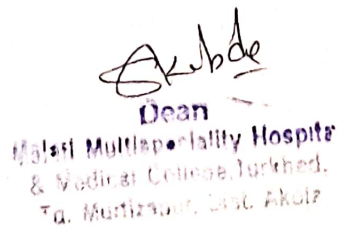 Dean
Malati Multispeciality Hospital
& Medical College, Turkhed.
Tq. Murtizapur, Dist. Akola